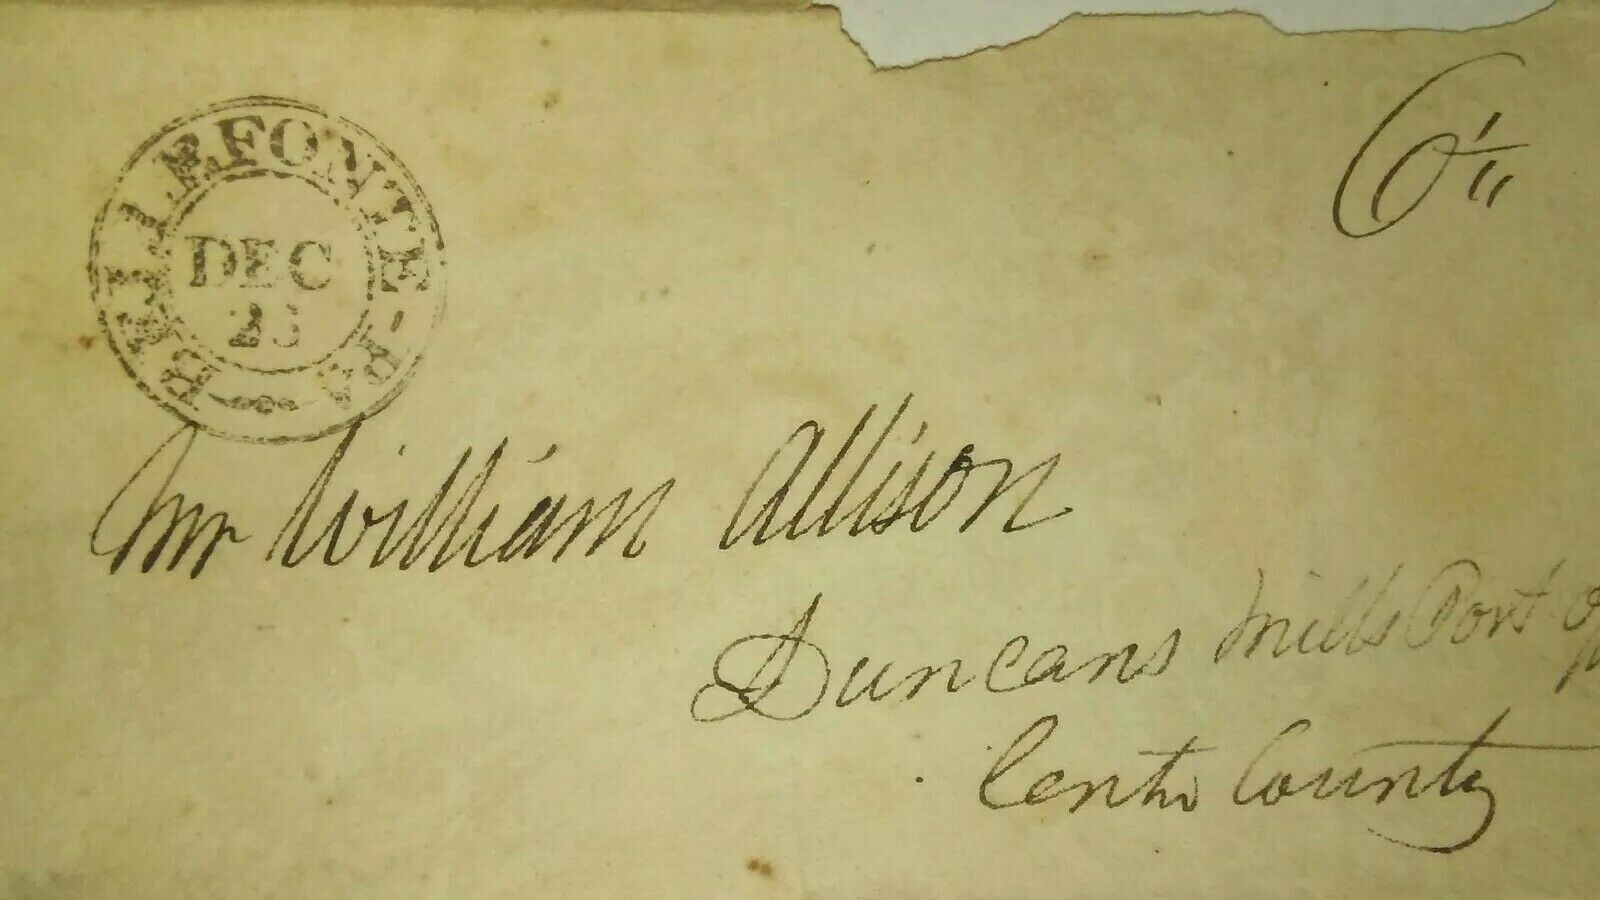 BELLEFONTE - PA
DEC
6
Mr William Allison
Duncans Mills Post
Centre County